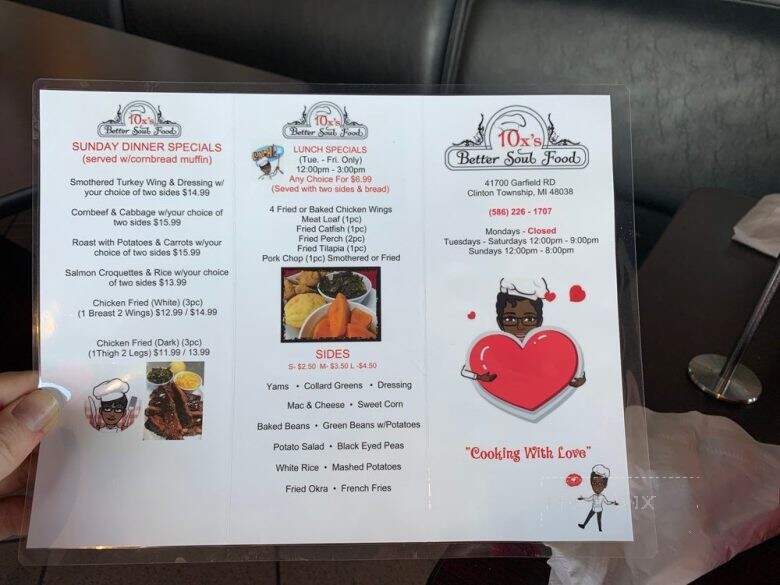 10x's
Better Soul Food
SUNDAY DINNER SPECIALS
(served w/cornbread muffin)
Smothered Turkey Wing & Dressing w/
your choice of two sides $14.99
Cornbeef & Cabbage w/your choice of
two sides $15.99
Roast with Potatoes & Carrots w/your
choice of two sides $15.99
Salmon Croquettes & Rice w/your choice
of two sides $13.99
Chicken Fried (White) (3pc)
(1 Breast 2 Wings) $12.99 / $14.99
Chicken Fried (Dark) (3pc)
(1Thigh 2 Legs) $11.99 / 13.99
10x's
Better Soul Food
LUNCH SPECIALS
(Tue. - Fri. Only)
12:00pm - 3:00pm
Any Choice For $6.99
(Seved with two sides & bread)
4 Fried or Baked Chicken Wings
Meat Loaf (1pc)
Fried Catfish (1pc)
Fried Perch (2pc)
Fried Tilapia (1pc)
Pork Chop (1pc) Smothered or Fried
SIDES
S- $2.50 M- $3.50 L -$4.50
Yams • Collard Greens • Dressing
Mac & Cheese • Sweet Corn
Baked Beans • Green Beans w/Potatoes
Potato Salad • Black Eyed Peas
White Rice • Mashed Potatoes
Fried Okra • French Fries
10x's
Better Soul Food
41700 Garfield RD
Clinton Township, MI 48038
(586) 226 - 1707
Mondays - Closed
Tuesdays - Saturdays 12:00pm - 9:00pm
Sundays 12:00pm - 8:00pm
"Cooking With Love"